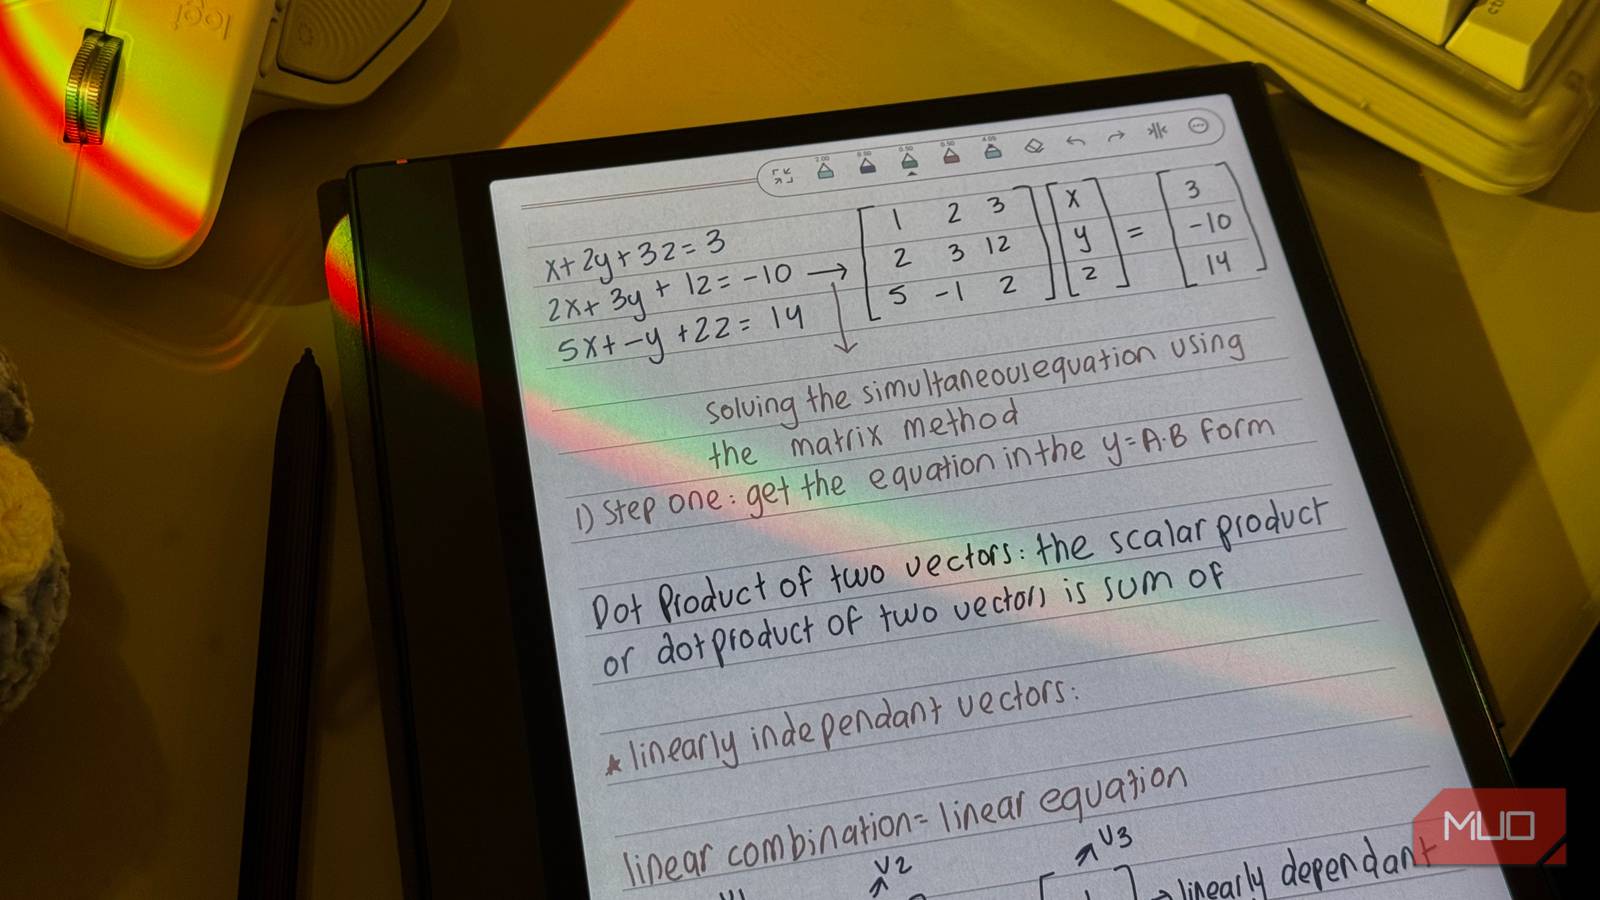 logi
2.00 0.50 0.50 0.50 4.05
x+2y+3z=3
2x+3y+1z=-10
5x+-y+2z=14
1 2 3
2 3 12
5 -1 2
x
y
z
=
3
-10
14
solving the simultaneousequation using
the matrix method
1) Step one: get the equation in the y=A·B form
Dot Product of two vectors: the scalar product
or dotproduct of two vectors is sum of
linearly independant vectors:
linear combination= linear equation
V1 V2 V3
linearly dependant
MUO